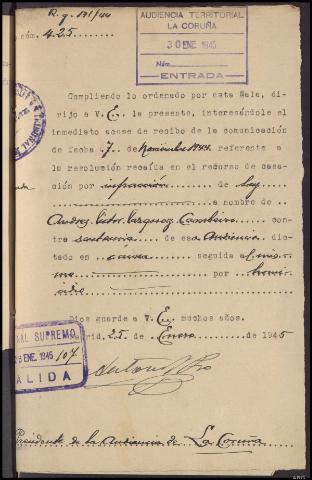 R. g. 171/44
núm. 425
AUDIENCIA TERRITORIAL
LA CORUÑA
30 ENE 1945
Núm.
ENTRADA
Cumpliendo lo ordenado por esta Sala, di-
rijo a V. E. la presente, interesándole el
inmediato acuse de recibo de la comunicación
de fecha 7 de Noviembre 1944 referente a
la resolución recaída en el recurso de casa-
ción por infracción de ley
a nombre de
Andres Victor Vazquez Cambeiro con-
tra sentencia de esa Audiencia, dic-
tada en causa seguida al mis-
mo por homi-
cidio
Dios guarde a V. E. muchos años.
Madrid, 25 de Enero de 1945
AL SUPREMO
ENE. 1945 107
ALIDA
Antonio
Presidente de la Audiencia de La Coruña